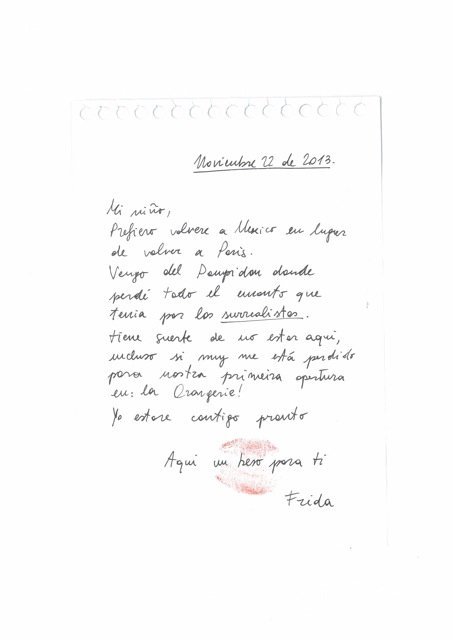 Noviembre 22 de 2013.
Mi niño,
Prefiero volvere a Mexico en lugar
de volver a Paris.
Vengo del Pompidou donde
perdé todo el encanto que
tenia por los surrealistas.
tiene suerte de no estar aqui,
incluso si muy me está perdido
para nostra primeira apertura
en: la Orangerie!
Yo estare contigo pronto
Aqui un beso para ti
Frida